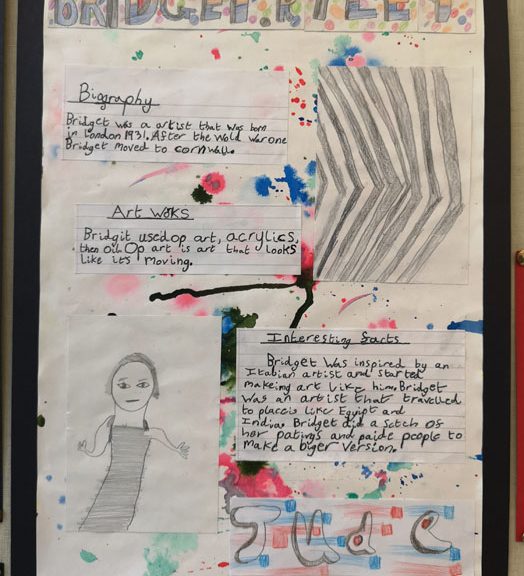 BRIDGET RILEY
Biography
Bridget was a artist that was born
in London 1931. After the wold war one
Bridget moved to cornwall.
Art woks
Bridgit used op art, acrylics,
then oil. Op art is art that looks
like its moving.
Interesting facts
Bridget was inspired by an
Itabian artist and started
makeing art like him. Bridget
was an artist that travelled
to placeis like Egyipt and
India. Bridget did a setch of
her patings and paide people to
make a biger version.
Jude